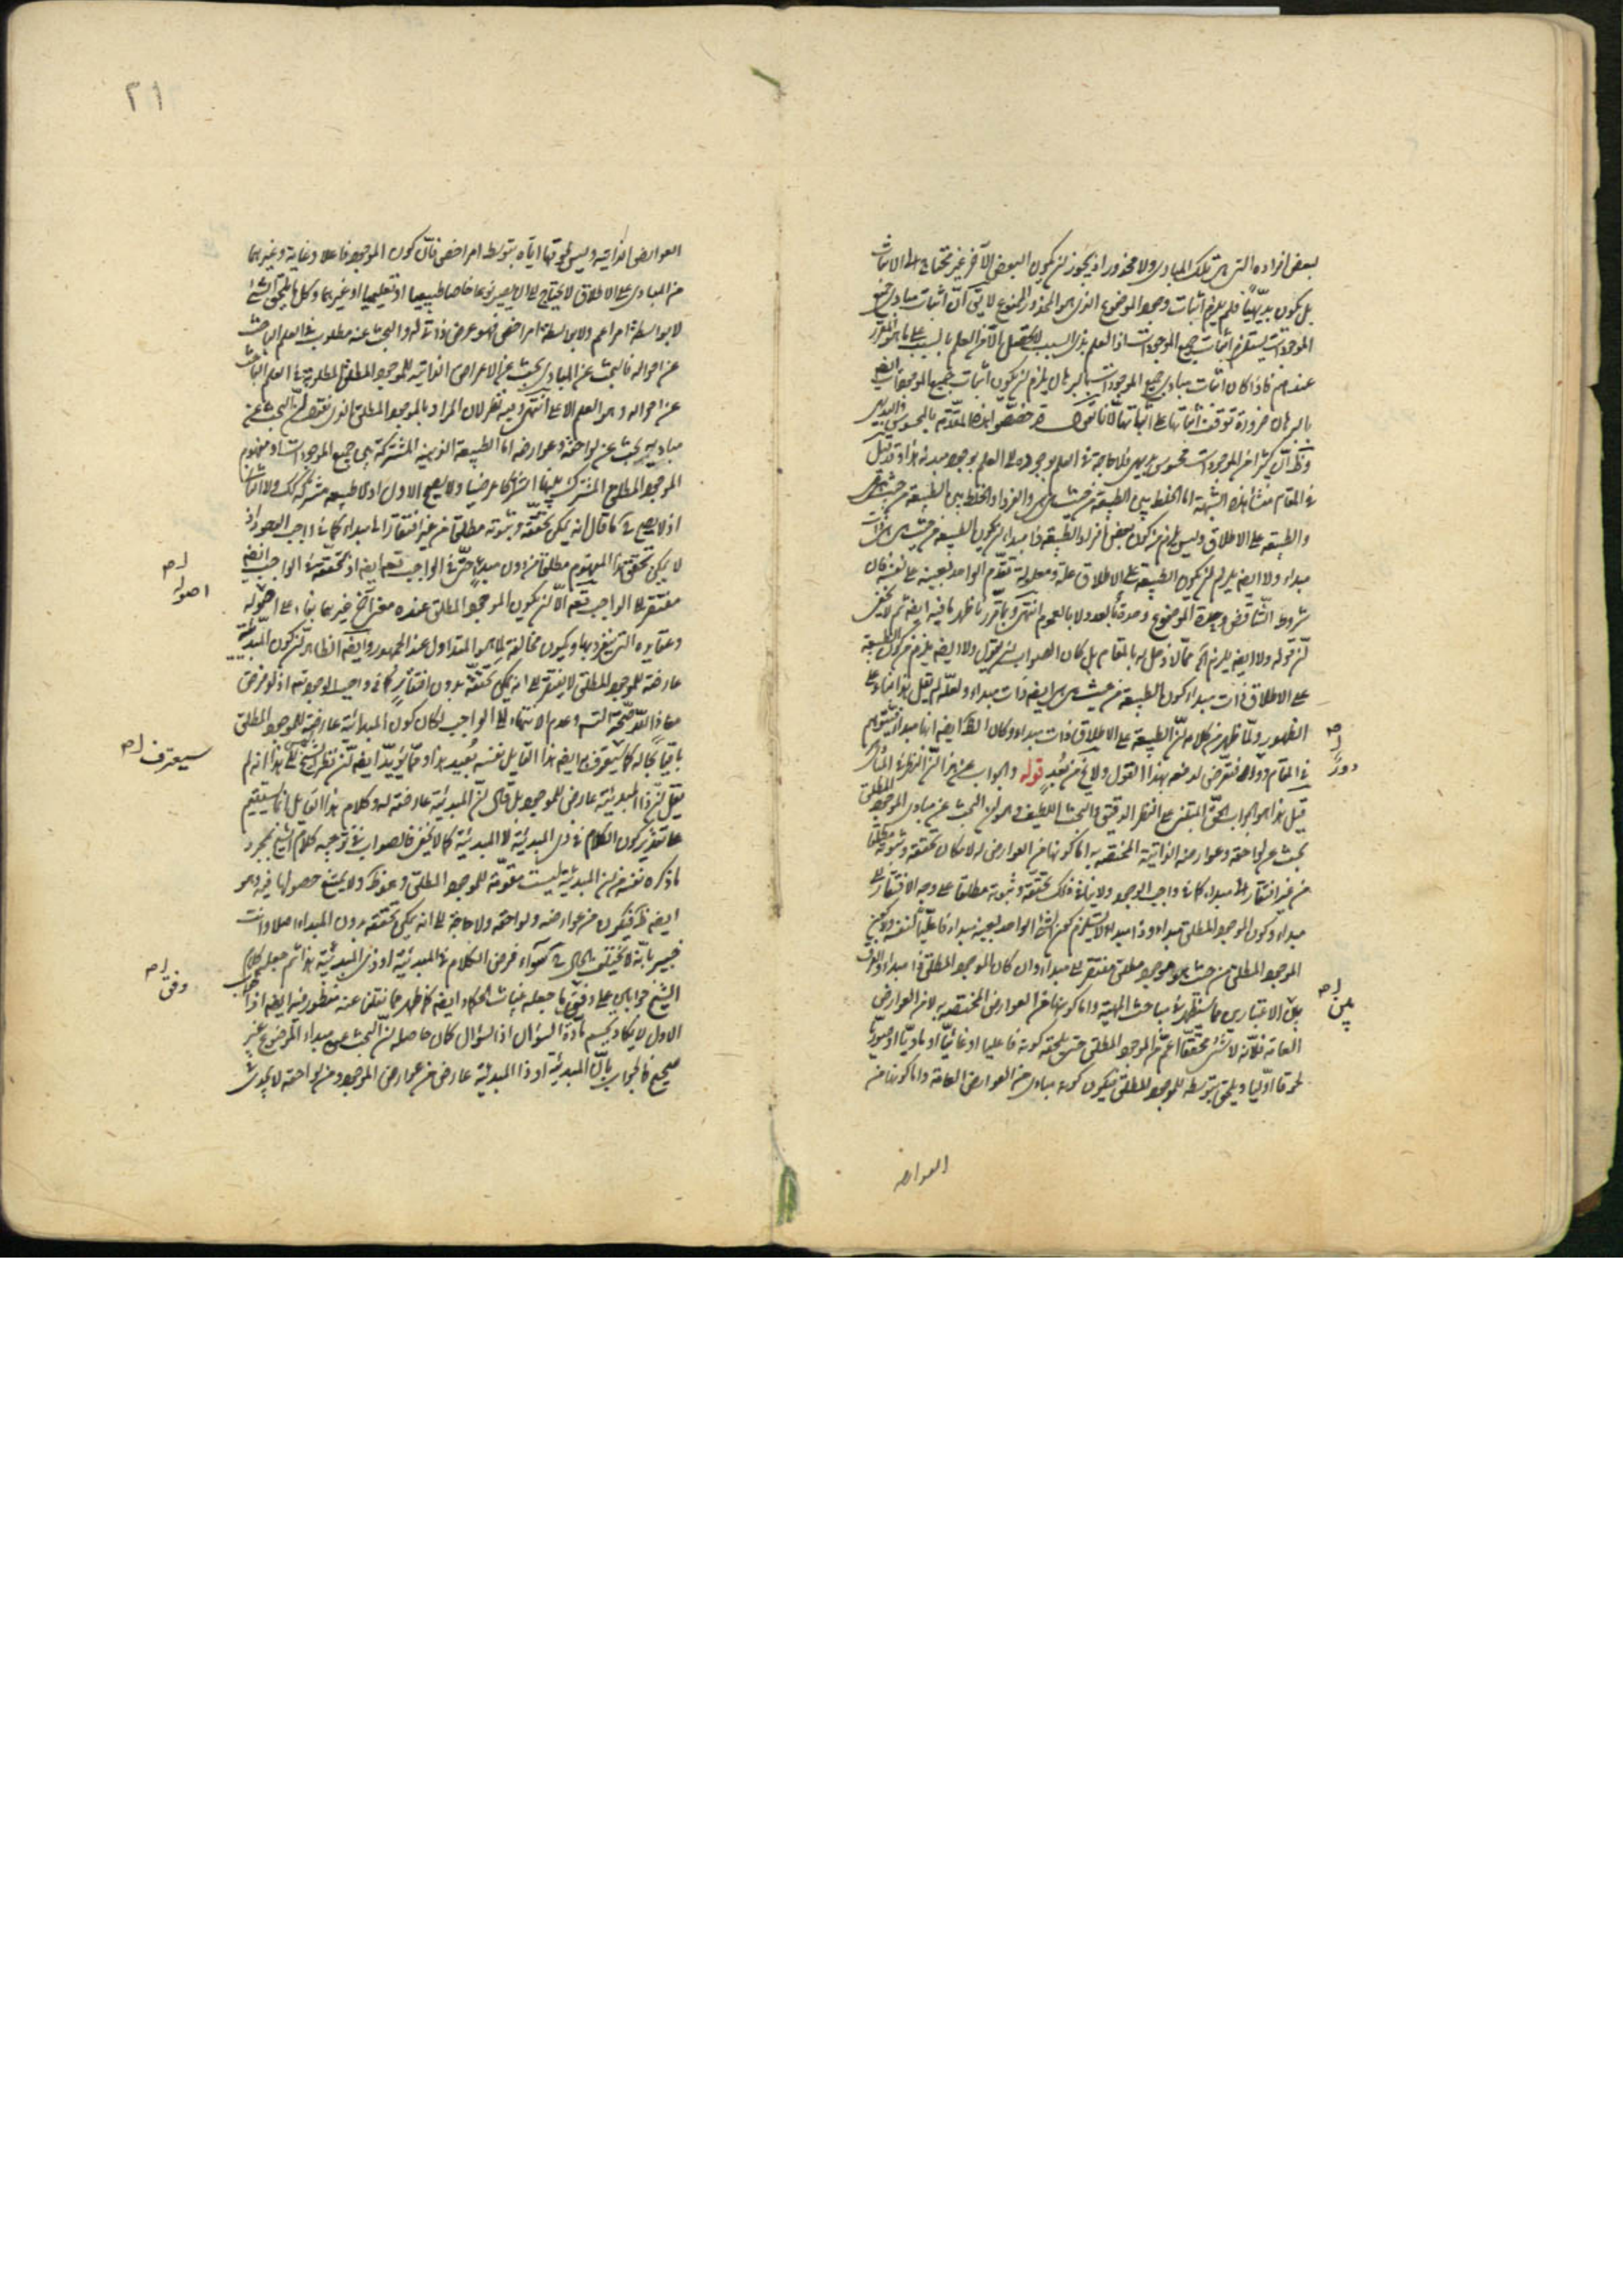 بعض افراده التى هى تلك المبادى ولا محذور اذ يجوز ان يكون البعض الآخر غير محتاج الى الاثبات
بل يكون بديهيا فلم يلزم اثبات وجود الموضوع الذى هو المحذور الممنوع لا يق ان اثبات مبادى جميع
الموجودات يستلزم اثبات جميع الموجودات اذ العلم بذى السبب لا يحصل الا من العلم بالسبب على ما هو المقرر
عندهم فاذا كان اثبات مبادى جميع الموجودات بالبرهان يلزم ان يكون اثبات جميع الموجودات ايضا
بالبرهان ضرورة توقف اثباتها على اثباتها لانا نقول قد خصصوا هذه المقدمة بالمحسوس
وظ ان كثيرا من الموجودات محسوس بديهى فلا حاجة فى العلم بوجوده الى العلم بوجود مبدئه هذا وقد قيل
فى المقام منشأ هذه الشبهة اما الخلط بين الطبيعة من حيث هى والفرد او الخلط بين الطبيعة من حيث هى
والطبيعة على الاطلاق وليس يلزم من كون بعض افراد الطبيعة ذا مبداء ان يكون الطبيعة من حيث هى ذات
مبداء ولا ايضه يلزم ان يكون الطبيعة على الاطلاق علة ومعلولة تقدم الواحد بعينه على نفسه فان
شروط التناقض وحدة الموضوع وحدة بالعدد لا بالعموم انتهى وبما قرر ما ظهر ما فيه ايضه ثم لا يخفى
ان قوله ولا ايضه يلزم آه مما لا دخل له بالمقام بل كان الصواب ان يقول ولا ايضه يلزم من كون الطبيعة
على الاطلاق ذات مبداء كون الطبيعة من حيث هى هى ايضه ذات مبداء ولعله لم يقل هذا بناء على
الظهور ولما ظهر من كلامه ان الطبيعة على الاطلاق ذات مبداء وكان الظ ايضه انها مبداء فيتوهم
فى المقام دور فتعرض لدفعه بهذا القول ولا يخ من بعد قوله والجواب عن هذا ان النظر فى المبادى
قيل هذا هو الجواب الحق المبتنى على النظر الدقيق والبحث اللطيف وهو ان البحث عن مبادى الموجود المطلق
بحث عن لواحقه وعوارضه الذاتية المختصة به اما كونها من العوارض له لامكان تحققه وثبوته مطلقا
من غير افتقار الى مبداء كما فى واجب الوجود ولا ينافى ذلك تحققه وثبوته مطلقا على وجه الافتقار الى
مبداء وكون الموجود المطلق مبداء وذا مبداء لا يستلزم كون الواحد بعينه مبداء فاعليا لنفسه ولكن
الموجود المطلق من حيث هو موجود مطلق مفتقر الى مبداء وان كان الموجود المطلق ذا مبداء والفرق
بين الاعتبارين مما يستظهر فى مباحث المهية واما كونها من العوارض المختصة به لا من العوارض
العامة فلانه لا شئ محققا اعم من الموجود المطلق حتى يلحقه كونه فاعليا او غائيا او ماديا او صوريا
لحوقا اوليا ويلحق بتوسطه للموجود المطلق فيكون كونه مبادى من العوارض العامة واما كونها من
العوارض
دور
بين
٢١
العوارض الذاتية وليس لحوقها اياه بتوسط امر اخص فان كون الموجود فاعلا وغاية وغيرهما
من المبادى على الاطلاق لا يحتاج الى ان يصير نوعا خاصا طبيعيا او تعليميا او غيرهما وكل ما يلحق الشئ
لا بواسطة امر اعم ولا بواسطة امر اخص فهو عرض ذاتى له والبحث عنه مطلوب فى العلم الباحث
عن احواله فالبحث عن المبادى بحث عن الاعراض الذاتية للموجود المطلق المطلوبة فى العلم الباحث
عن احواله وهو العلم الاعلى انتهى وفيه نظر لان المراد بالموجود المطلق الذى نقول ان البحث عن
مباديه بحث عن لواحقه وعوارضه اما الطبيعة النوعية المشتركة بين جميع الموجودات او مفهوم
الموجود المطلق المشترك بينها اشتراكا عرضيا ولا يصح الاول اذ لا طبيعة مشتركة كذلك ولا الثانى
اذ لا يصح ح ما قال انه يمكن تحققه وثبوته مطلقا من غير افتقار الى مبداء كما فى واجب الوجود اذ
لا يمكن تحقق هذا المفهوم مطلقا من دون مبدء حتى فى الواجب تعه ايضه اذ تحققه فى الواجب ايضه
مفتقر الى الواجب تعه الا ان يكون الموجود المطلق عنده معنى آخر غيرهما بناء على اصوله
وعقايده التى ينفرد بها ويكون مخالفة لما هو المتداول عند الجمهور وايضه الظاهر ان كون المبدئية
عارضة للموجود المطلق لا يفتقر الى انه يمكن تحققه بدون افتقار كما فى واجب الوجود تعه اذ لو فرض
معاذ الله صحة التسه وعدم الانتهاء الى الواجب لكان كون المبدائية عارضة للموجود المطلق
باقيا بحاله كما سيعترف به ايضه هذا القايل نفسه بعيد هذا ومما يؤيد ايضه ان نظر الشيخ ليس الى هذا انه لم
يقل ان ذا المبدئية عارض للموجود بل قال ان المبدئية عارضة له وكلام هذا القايل انما يستقيم
على تقدير كون الكلام فى ذى المبدئية لا المبدئية كما لا يخفى فالصواب فى توجيه كلام الشيخ مجرد
ما ذكره نفسه من ان المبدئية ليست مقومة للموجود المطلق وهو ظ ولا يمتنع حصولها فيه وهو
ايضه ظ فيكون من عوارضه ولواحقه ولا حاجة الى انه يمكن تحققه بدون المبداء اصلا وانت
خبير بانه لا يختلف الحال ح سواء فرض الكلام فى المبدئية او ذى المبدئية هذا ثم جعله كلام
الشيخ جوابا على وفق ما جعله بناء شك الحكاء ايضه كما ظهر مما نقلنا عنه منظور فيه ايضه اذ الجواب
الاول لا يكاد يحسم مادة السؤال اذ السؤال كان حاصله ان البحث عن مبداء الموضوع غير
صحيح فالجواب بان المبدئية او ذا المبدئية عارض من عوارض الموجود ومن لواحقه لا يجدى
اصوله
سيعترف
وفق